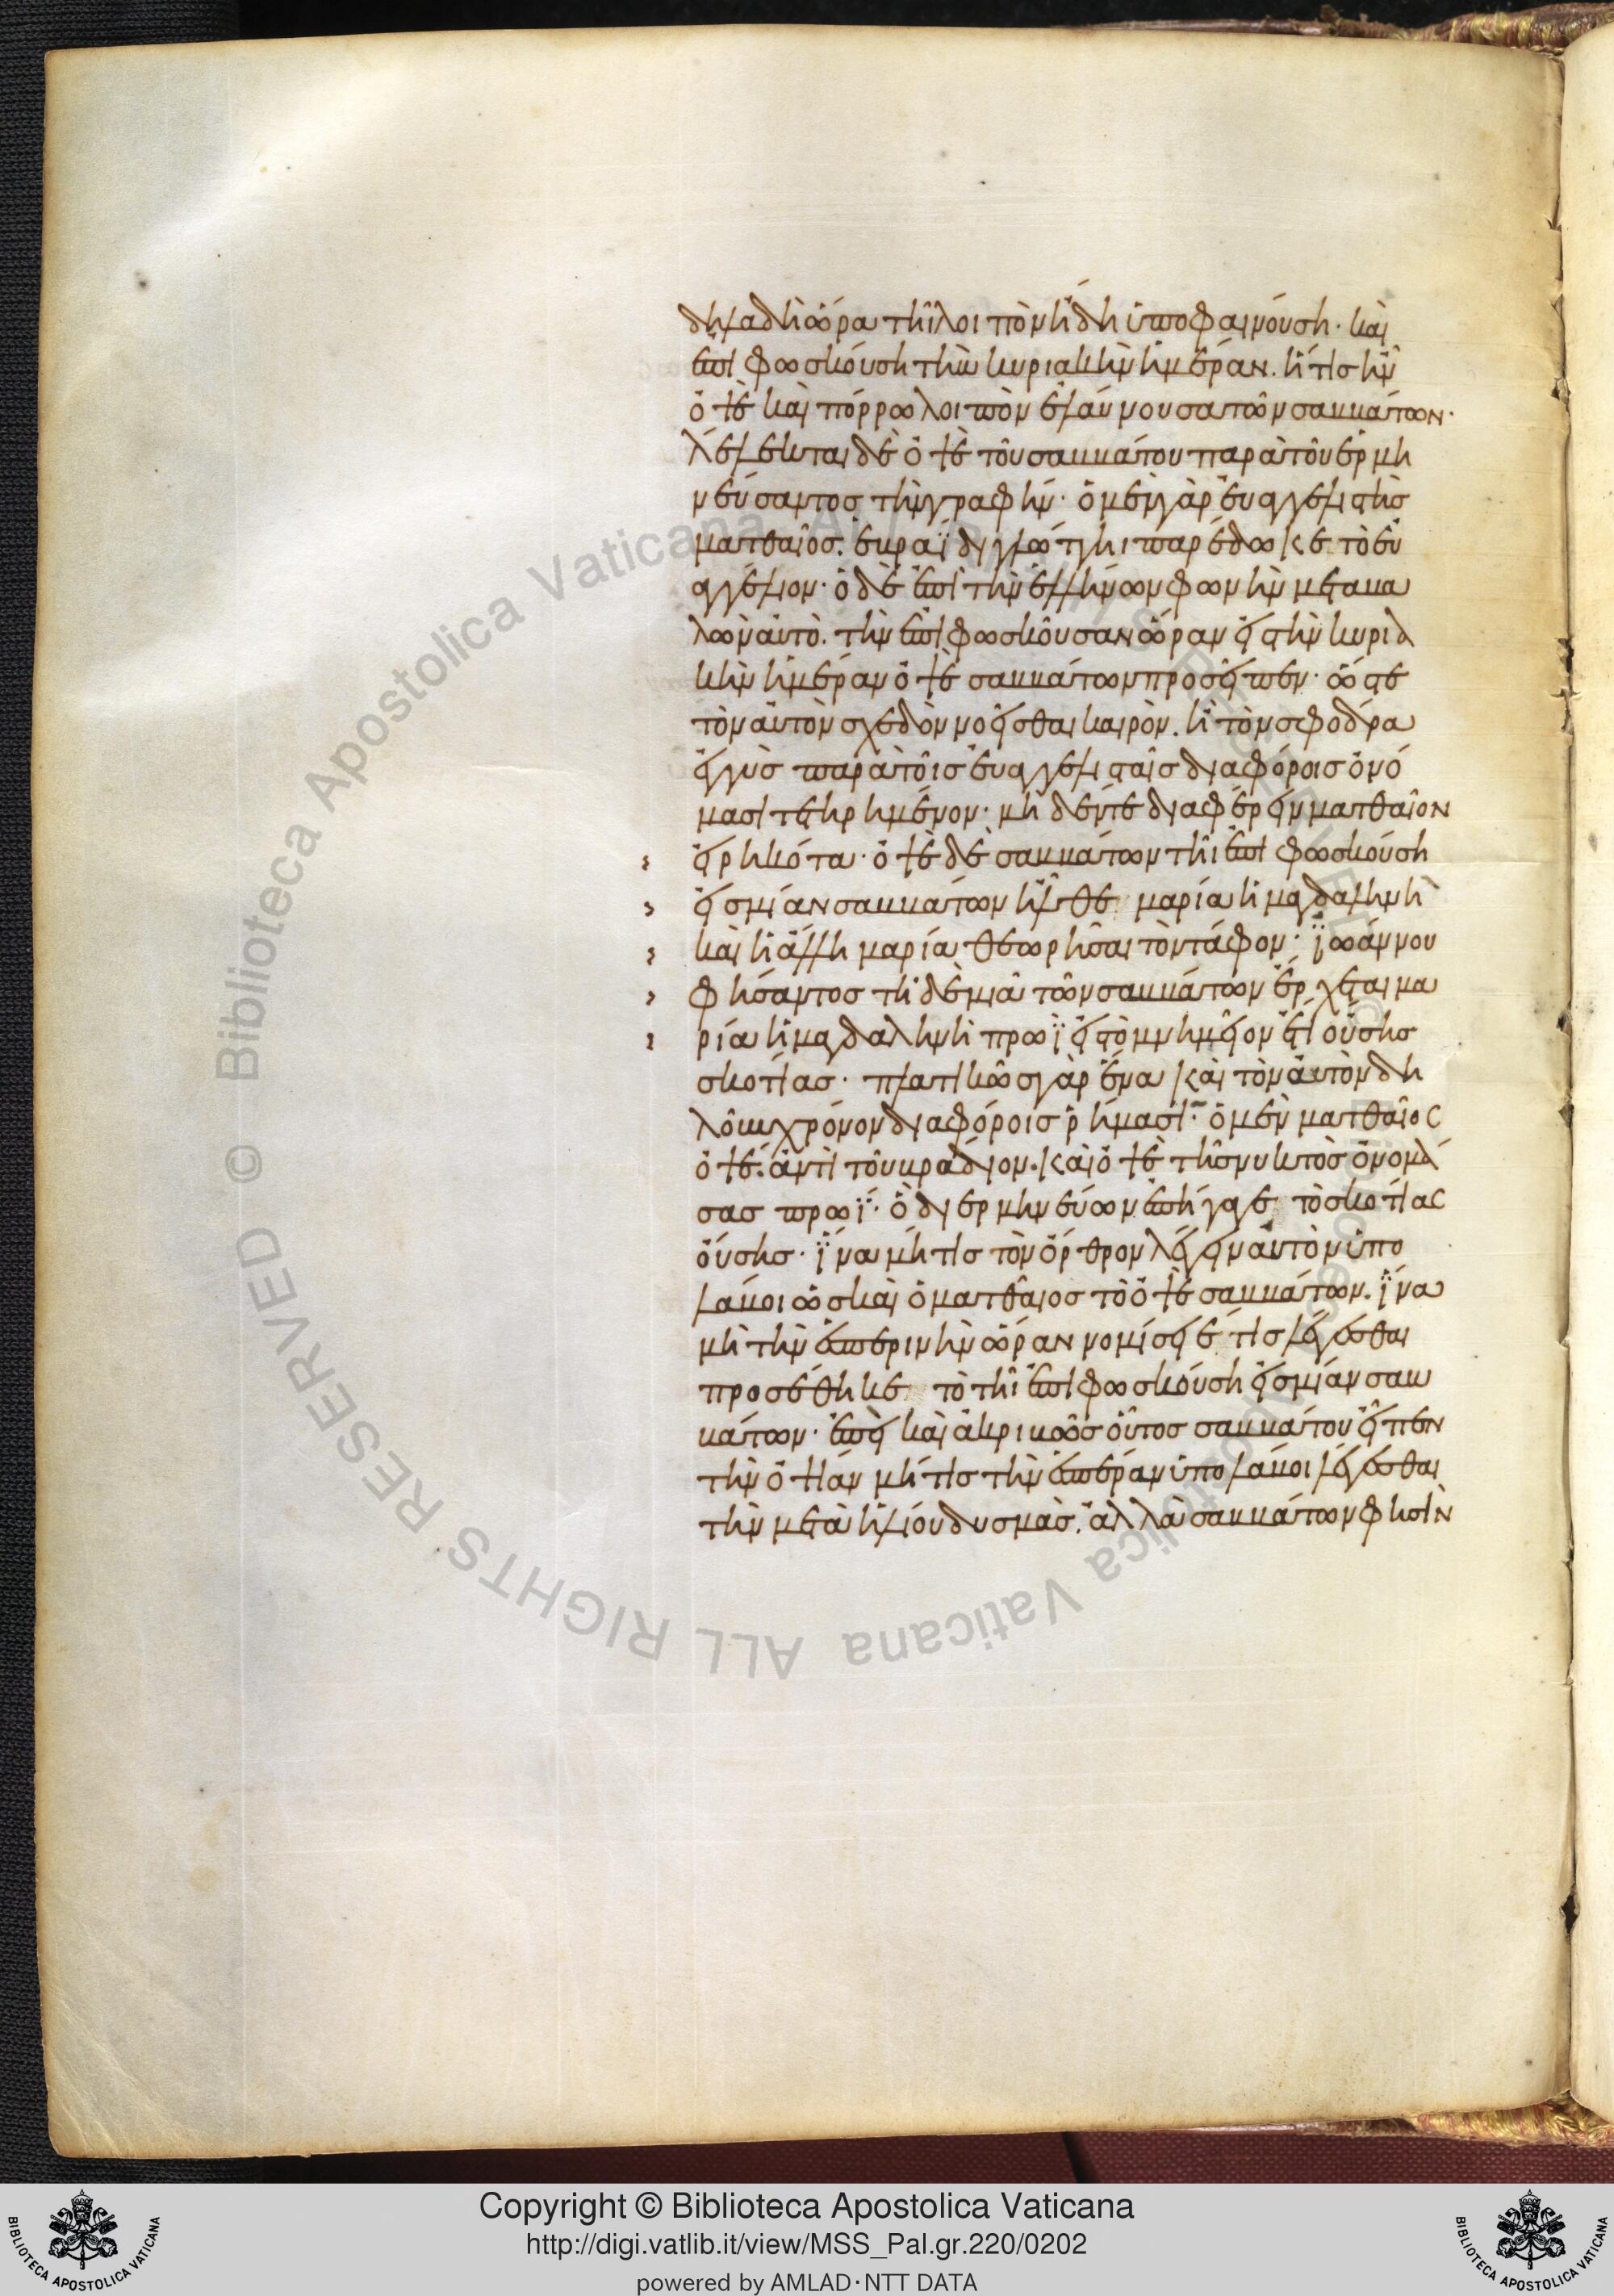 δηλαδὴ ὥρα τῆι λοιπὸν ἤδη ὑποφαινούση· καὶ
ἐπιφωσκούση τὴν κυριακὴν ἡμέραν. ἥτις ἦν
ὀψὲ καὶ πόρρω λοιπὸν ἐλαύνουσα τῶν σαββάτων·
λέλεκται δὲ ὀψὲ τοῦ σαββάτου παρὰ τοῦ ἑρμη
νεύσαντος τὴν γραφήν· ὁ μὲν γὰρ εὐαγγελιστὴς
ματθαῖος. ἑβραΐδι γλώττηι παρέδωκε τὸ εὐ
αγγέλιον· ὁ δὲ ἐπὶ τὴν ἑλλήνων φωνὴν μεταβα
λὼν αὐτὸ. τὴν ἐπιφωσκοῦσαν ὥραν εἰς τὴν κυρια
κὴν ἡμέραν ὀψὲ σαββάτων προσεῖπεν· ὥστε
τὸν αὐτὸν σχεδὸν νοεῖσθαι καιρὸν. ἢ τὸν σφοδρα
ἐγγὺς παρὰ τοῖς εὐαγγελισταῖς διαφόροις ὀνό
μασι τετηρημένον· μηδέν τε διαφέρειν ματθαῖον
εἰρηκότα· ὀψὲ δὲ σαββάτων τῆι ἐπιφωσκούση
εἰς μίαν σαββάτων ἦλθε μαρία ἡ μαγδαληνὴ
καὶ ἡ ἄλλη μαρία θεωρῆσαι τὸν τάφον· ἰωάννου
φήσαντος τῆ δὲ μιᾶ τῶν σαββάτων ἔρχεται μα
ρία ἡ μαγδαληνὴ πρωῒ εἰς τὸ μνημεῖον ἔτι οὔσης
σκοτίας· πλατικῶς γὰρ ἕνα καὶ τὸν αὐτὸν δη
λοῦσι χρόνον διαφόροις ῥήμασι· ὁ μὲν ματθαῖος
ὀψέ. ἀντὶ τοῦ βράδιον. καὶ ὀψὲ τῆς νυκτὸς ὀνομά
σας πρωΐ· ὃ διερμηνεύων ἐπήγαγε τὸ σκοτίας
οὔσης· ἵνα μή τις τὸν ὄρθρον λέγειν αὐτὸν ὑπο
λάβοι ὡς καὶ ὁ ματθαῖος τὸ ὀψὲ σαββάτων. ἵνα
μὴ τὴν ἑσπερινὴν ὥραν νομίσειέ τις λέγεσθαι
προσέθηκε τὸ τῆ ἐπιφωσκούση εἰς μίαν σαβ
βάτων· ἐπεὶ καὶ ἀκριβῶς οὗτος σαββάτου εἶπεν
τὴν ὀψίαν μή τις τὴν ἑσπέραν ὑπολάβοι λέγεσθαι
τὴν μετὰ ἡλίου δυσμὰς. ἀλλὰ σαββάτων φησὶν
Copyright © Biblioteca Apostolica Vaticana
http://digi.vatlib.it/view/MSS_Pal.gr.220/0202
powered by AMLAD·NTT DATA